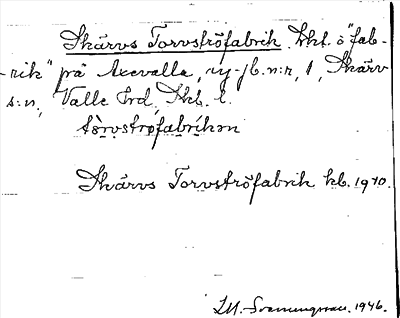 Skärvs Torvströfabrik, kht. o "fab-
-rik" på Axevalla, ny-jb.n:r, 1, Skärv
s:n, Valle hrd, Skb. l.
tòrvstrøfabrikən
Skärvs Torvströfabrik kb. 1970.
1946.